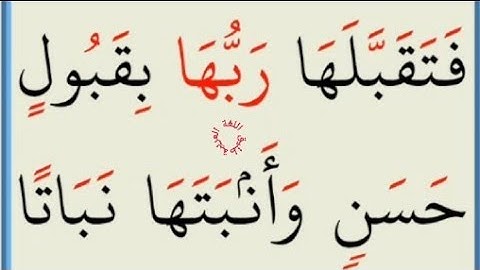 فَتَقَبَّلَهَا رَبُّهَا بِقَبُولٍ
حَسَنٍ وَأَنۢبَتَهَا نَبَاتًا